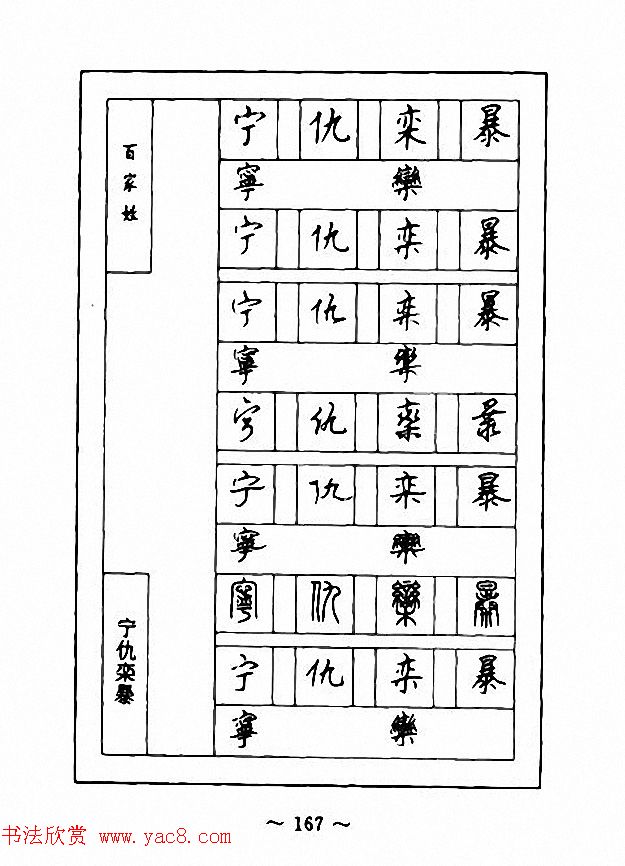 百家姓
宁 仇 栾 暴
寧 欒
宁 仇 栾 暴
宁 仇 栾 暴
寧 欒
宁 仇 栾 暴
宁 仇 栾 暴
寧 欒
寧 仇 欒 暴
宁 仇 栾 暴
寧 欒
宁仇栾暴
~ 167 ~
书法欣赏 www.yac8.com